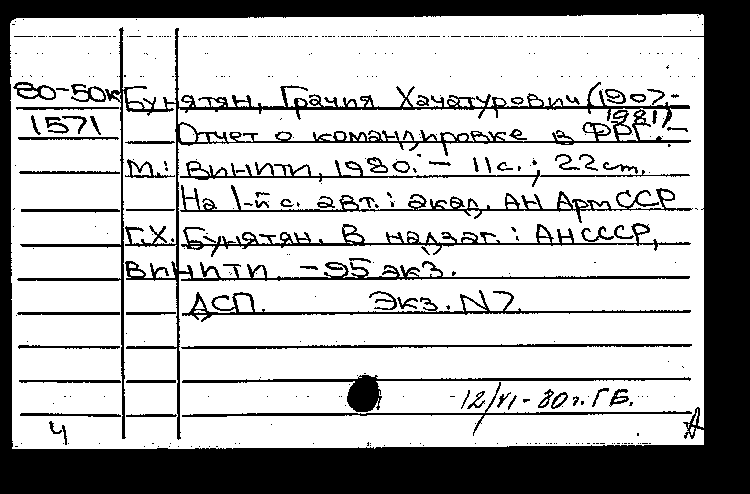 80-50к Бунятян, Грачия Хачатурович (1907-
1981)
1571 Отчет о командировке в ФРГ. -
М.: ВИНИТИ, 1980. - 11 с.; 22 cm.
На 1-й с. авт.: акад. АН Арм ССР
Г.Х. Бунятян. В надзаг.: АН СССР,
ВИНИТИ. - 95 экз.
ДСП. Экз. N 7.
12/VI - 80 г. Г Б.
4